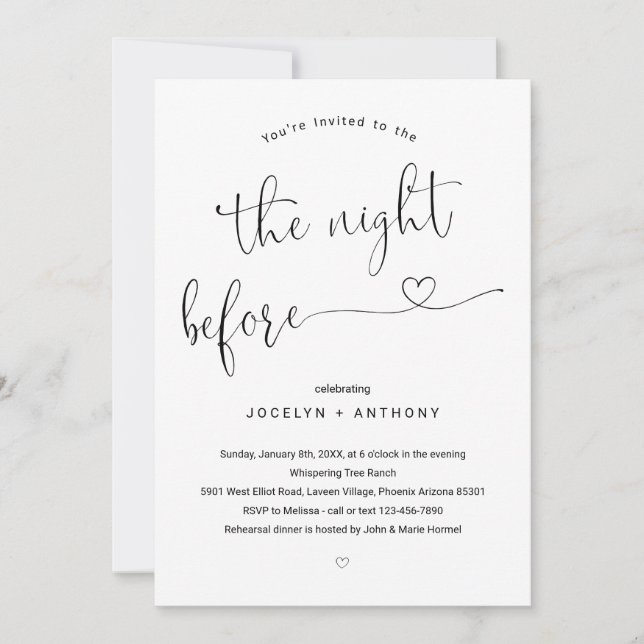 You're Invited to the
the night
before
celebrating
JOCELYN + ANTHONY
Sunday, January 8th, 20XX, at 6 o'clock in the evening
Whispering Tree Ranch
5901 West Elliot Road, Laveen Village, Phoenix Arizona 85301
RSVP to Melissa - call or text 123-456-7890
Rehearsal dinner is hosted by John & Marie Hormel